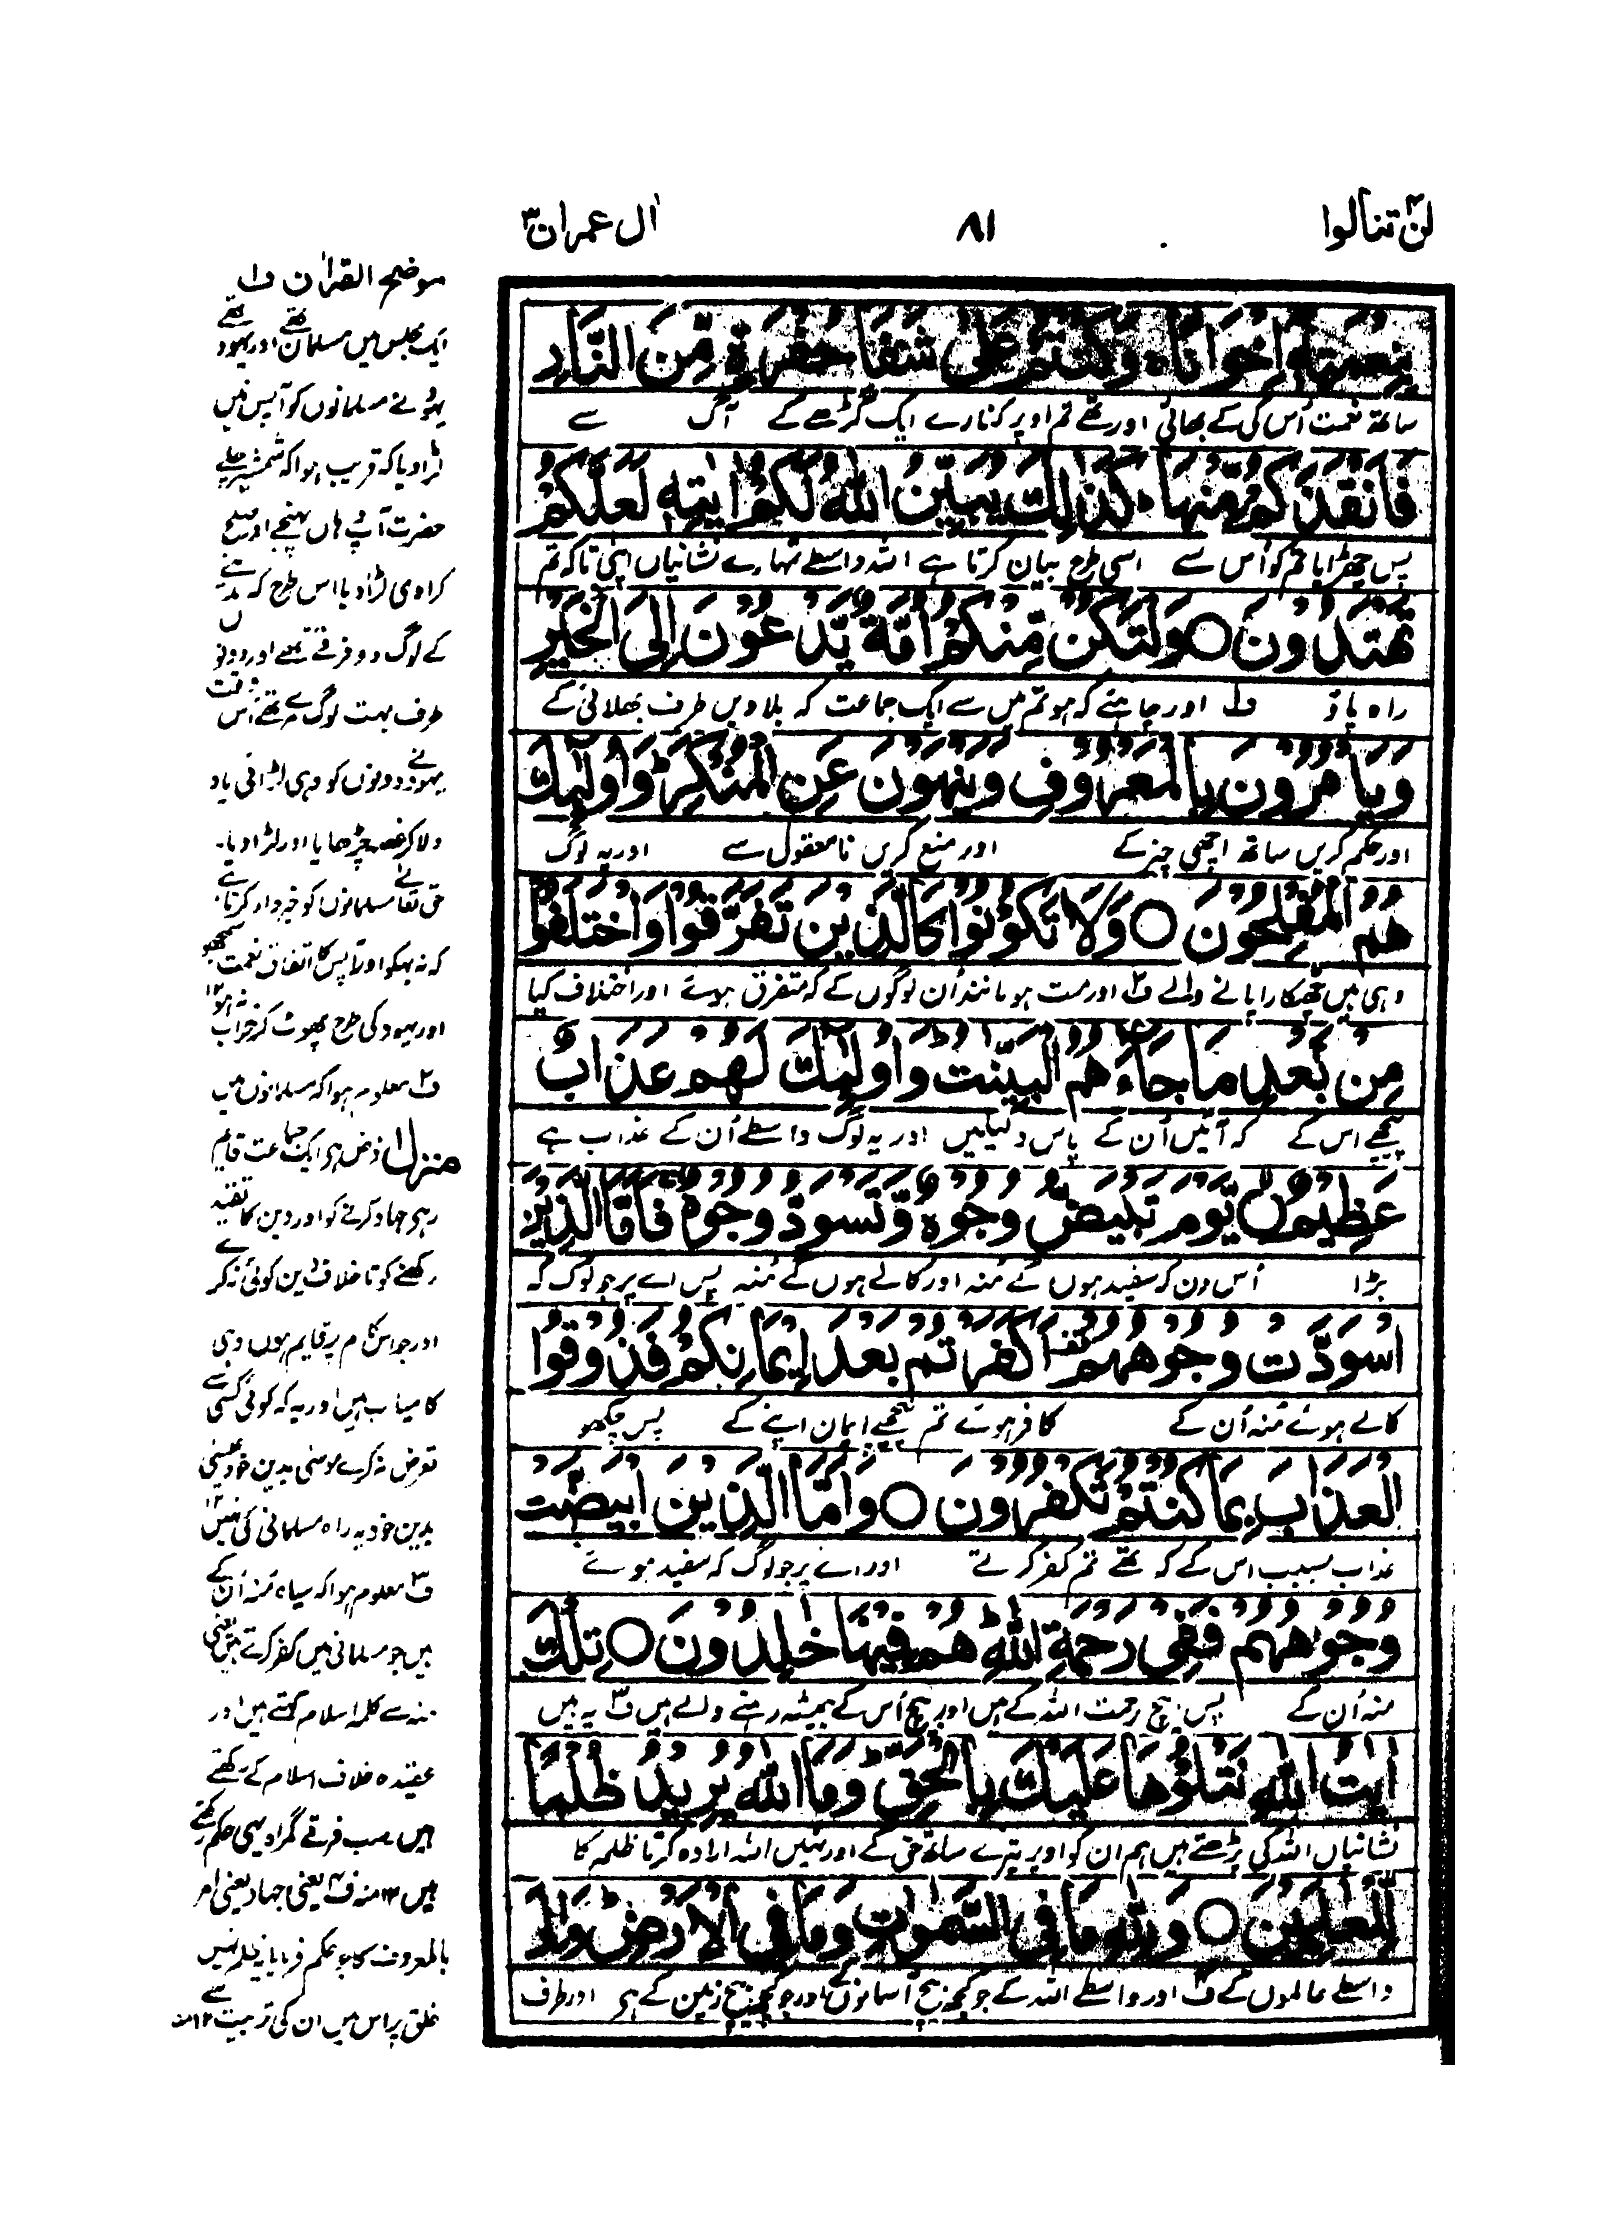 لن تنالوا ۴
۸۱
اٰل عمران ۳
بِنِعْمَتِهٖۤ اِخْوَانًاۚ وَكُنْتُمْ عَلٰى شَفَا حُفْرَةٍ مِّنَ النَّارِ
ساتھ نعمت اُس کی کے بھائی اور تھے تم اوپر کنارے ایک گڑھے کے آگ سے
فَاَنْقَذَكُمْ مِّنْهَاؕ كَذٰلِكَ يُبَيِّنُ اللّٰهُ لَكُمْ اٰيٰتِهٖ لَعَلَّكُمْ
پس چھڑایا تم کو اُس سے اسی طرح بیان کرتا ہے اللہ واسطے تمہارے نشانیاں اپنی تاکہ تم
تَهْتَدُوْنَ ○ وَلْتَكُنْ مِّنْكُمْ اُمَّةٌ يَّدْعُوْنَ اِلَى الْخَيْرِ
راہ پاؤ ف۱ اور چاہئے کہ ہو تم میں سے ایک جماعت کہ بلاویں طرف بھلائی کے
وَيَاْمُرُوْنَ بِالْمَعْرُوْفِ وَيَنْهَوْنَ عَنِ الْمُنْكَرِؕ وَاُولٰٓئِكَ
اور حکم کریں ساتھ اچھی چیز کے اور منع کریں نامعقول سے اور یہ لوگ
هُمُ الْمُفْلِحُوْنَ ○ وَلَا تَكُوْنُوْا كَالَّذِيْنَ تَفَرَّقُوْا وَاخْتَلَفُوْا
وہی ہیں چھٹکارا پانے والے ف۲ اور مت ہو مانند اُن لوگوں کے کہ متفرق ہوئے اور اختلاف کیا
مِنْۢ بَعْدِ مَا جَآءَهُمُ الْبَيِّنٰتُؕ وَاُولٰٓئِكَ لَهُمْ عَذَابٌ
پیچھے اس کے کہ آئیں اُن کے پاس دلیلیں اور یہ لوگ واسطے اُن کے عذاب ہے
عَظِيْمٌ ○ يَّوْمَ تَبْيَضُّ وُجُوْهٌ وَّتَسْوَدُّ وُجُوْهٌۚ فَاَمَّا الَّذِيْنَ
بڑا اُس دن کہ سفید ہوں گے مُنہ اور کالے ہوں گے مُنہ پس اے پر جو لوگ کہ
اسْوَدَّتْ وُجُوْهُهُمْ۫ اَكَفَرْتُمْ بَعْدَ اِيْمَانِكُمْ فَذُوْقُوا
کالے ہوئے مُنہ اُن کے کافر ہوئے تم پیچھے ایمان اپنے کے پس چکھو
الْعَذَابَ بِمَا كُنْتُمْ تَكْفُرُوْنَ ○ وَاَمَّا الَّذِيْنَ ابْيَضَّتْ
عذاب بسبب اس کے کہ تھے تم کفر کرتے اور اے پر جو لوگ کہ سفید ہوئے
وُجُوْهُهُمْ فَفِيْ رَحْمَةِ اللّٰهِؕ هُمْ فِيْهَا خٰلِدُوْنَ ○ تِلْكَ
منہ اُن کے پس بیچ رحمت اللہ کے ہیں اور بیچ اُس کے ہمیشہ رہنے والے ہیں ف۳ یہ ہیں
اٰيٰتُ اللّٰهِ نَتْلُوْهَا عَلَيْكَ بِالْحَقِّؕ وَمَا اللّٰهُ يُرِيْدُ ظُلْمًا
نشانیاں اللہ کی پڑھتے ہیں ہم ان کو اوپر تیرے ساتھ حق کے اور نہیں اللہ ارادہ کرتا ظلم کا
لِّلْعٰلَمِيْنَ ○ وَلِلّٰهِ مَا فِي السَّمٰوٰتِ وَمَا فِي الْاَرْضِؕ وَاِلَى
واسطے عالموں کے ف۴ اور واسطے اللہ کے جو کچھ بیچ آسمانوں کے اور جو کچھ بیچ زمین کے ہے اور طرف
موضح القرآن ف۱
ایک مجلس میں مسلمان تھے اور یہود تھے
یہود نے مسلمانوں کو آپس میں
لڑا دیا کہ قریب ہوا کہ شمشیر چلے
حضرت آپ وہاں پہنچے اور صلح
کرا دی لڑا دیا اس طرح کہ مدینے
کے لوگ دو فرقے تھے اور دونوں
طرف بہت لوگ مرے تھے اُس وقت
یہود نے دونوں کو وہی لڑائی یاد
دلا کر غصہ چڑھایا اور لڑا دیا۔
حق تعالیٰ مسلمانوں کو خبردار کرتا ہے
کہ نہ بہکو اور آپس کا اتفاق نعمت سمجھو
اور یہود کی طرح پھوٹ کر خراب نہ ہو ۱۲
ف۲ معلوم ہوا کہ مسلمانوں میں
منزل۱
فرض ہے ایک جماعت قایم
رہے جہاد کرنے کو اور دین کا تقید
رکھنے کو تا خلاف دین کوئی نہ کرے
اور جو اس کام پر قایم ہوں وہی
کامیاب ہیں اور یہ کہ کوئی کسی سے
تعرض نہ کرے موسیٰ بدین خود عیسیٰ
بدین خود یہ راہ مسلمانی کی نہیں ۱۲
ف۳ معلوم ہوا کہ سیاہ مُنہ اُن کے
ہیں جو مسلمانی میں کفر کرتے ہیں یعنی
منہ سے کلمہ اسلام کہتے ہیں اور
عقیدہ خلاف اسلام کے رکھتے
ہیں سب فرقے گمراہ یہی حکم رکھتے
ہیں ۱۲ منہ ف۴ یعنی جہاد یعنی امر
بالمعروف کا جو حکم فرمایا یہ ظلم نہیں
خلق پر اس میں ان کی تربیت ہے ۱۲ منہ